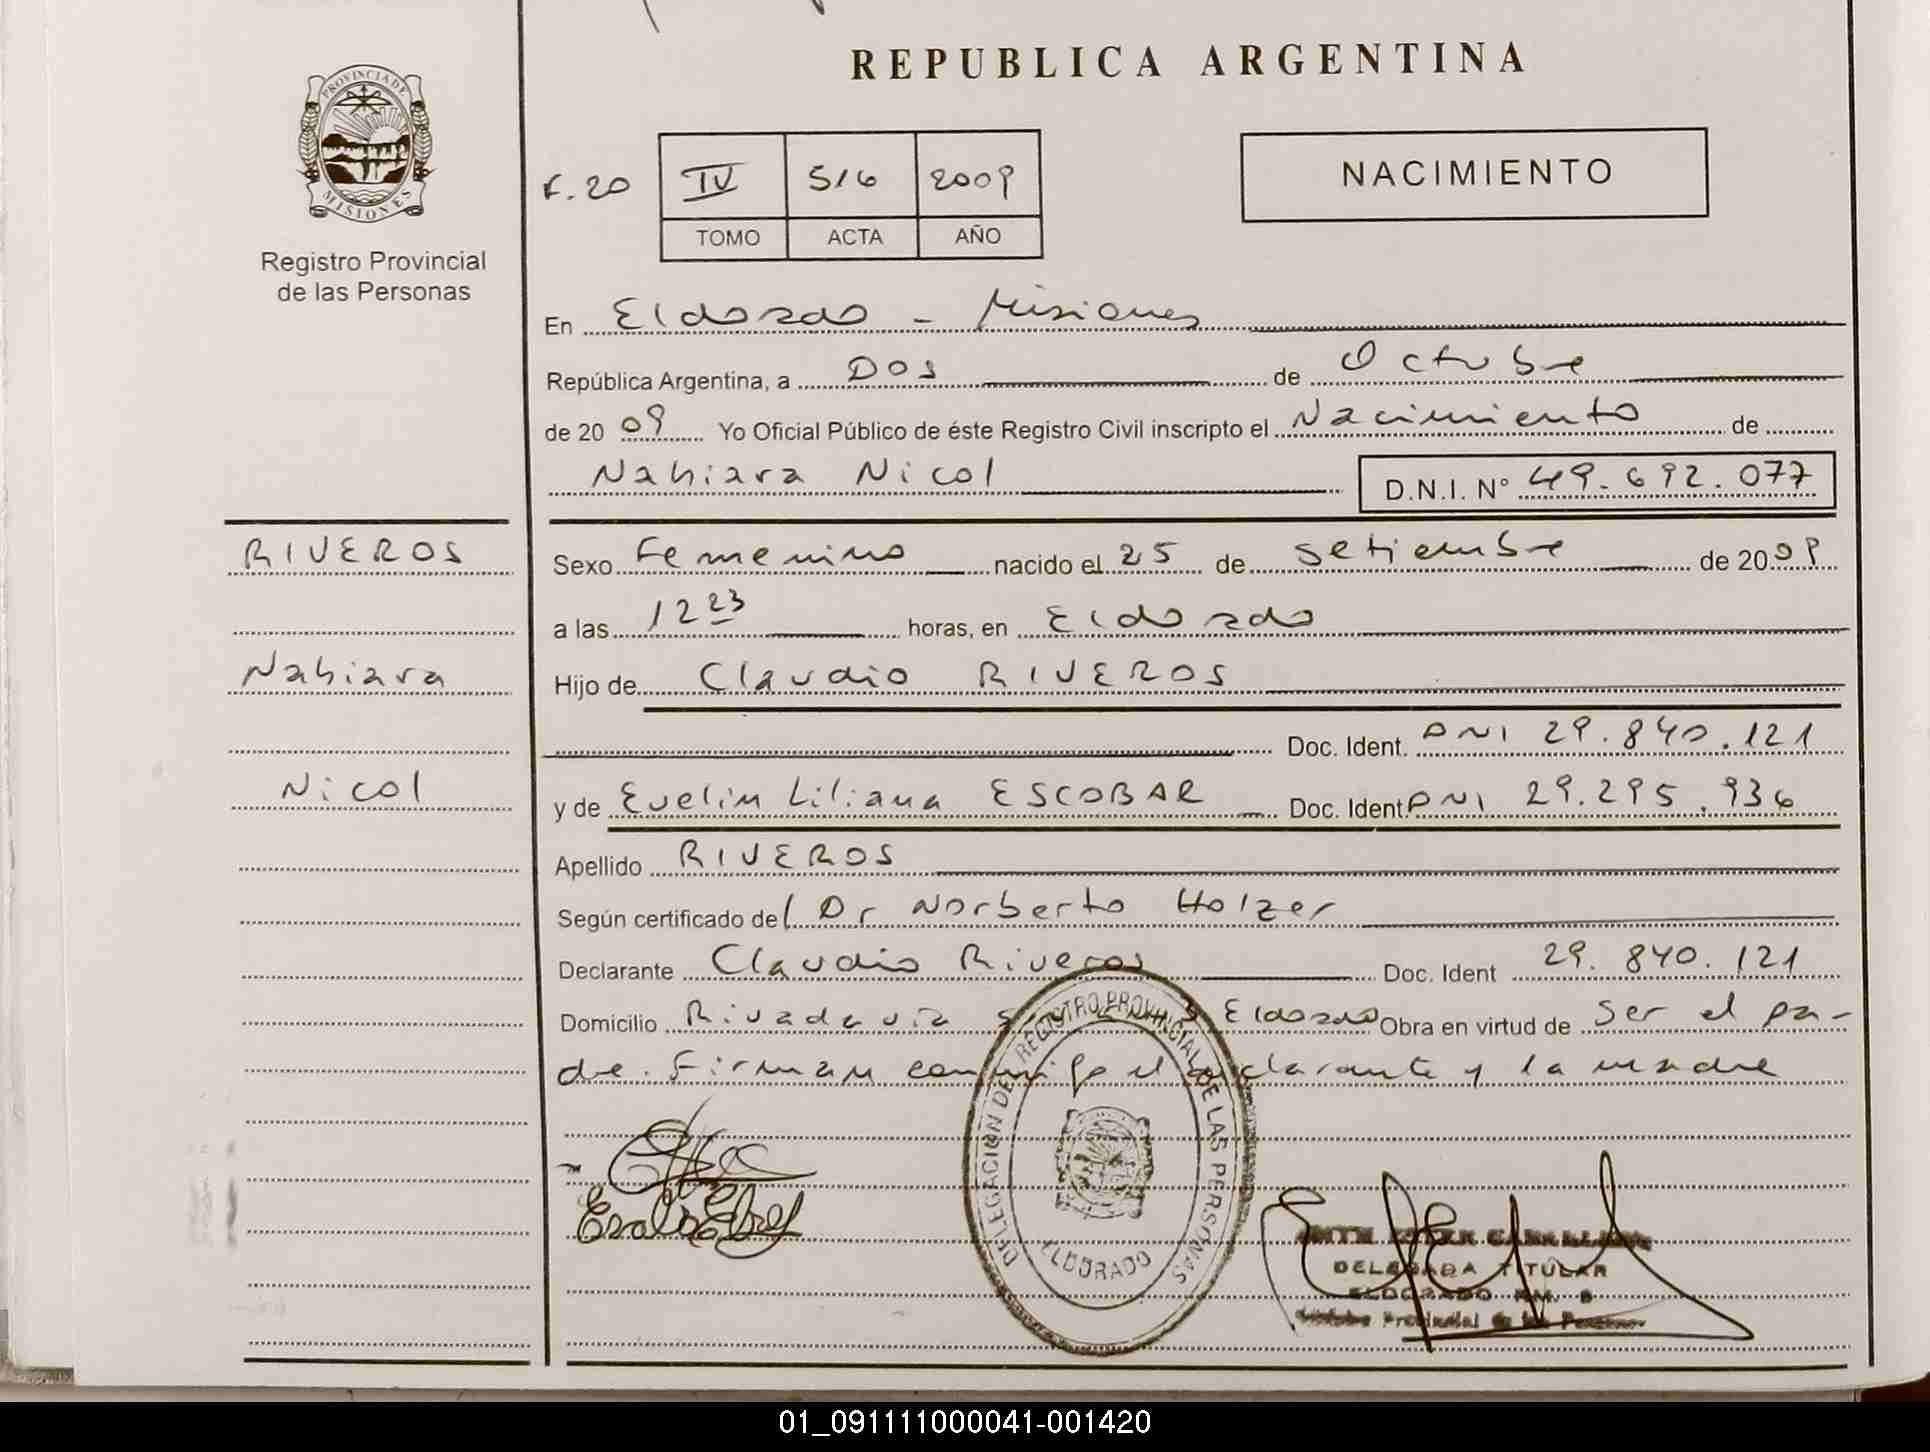 REPUBLICA ARGENTINA
PROVINCIA DE
MISIONES
Registro Provincial
de las Personas
NACIMIENTO
F. 20 IV 516 2009
TOMO ACTA AÑO
En Eldorado - Misiones
República Argentina, a Dos de Octubre
de 2009 Yo Oficial Público de éste Registro Civil inscripto el Nacimiento de
Nahiara Nicol D.N.I. N° 49.692.077
RIVEROS
Nahiara
Nicol
Sexo Femenino nacido el 25 de Setiembre de 2009
a las 12 23 horas, en Eldorado
Hijo de Claudio RIVEROS
Doc. Ident. DNI 29.840.121
y de Evelin Liliana ESCOBAR Doc. Ident. DNI 29.295.936
Apellido RIVEROS
Según certificado del Dr Norberto Holzer
Declarante Claudio Riveros Doc. Ident 29.840.121
Domicilio Rivadavia Eldorado Obra en virtud de ser el pa-
dre. Firman conmigo el declarante y la madre
DELEGACION DEL REGISTRO PROVINCIAL DE LAS PERSONAS
ELDORADO
DELEGADA TITULAR
ELDORADO KM. 
Provincial de las Personas
01_091111000041-001420